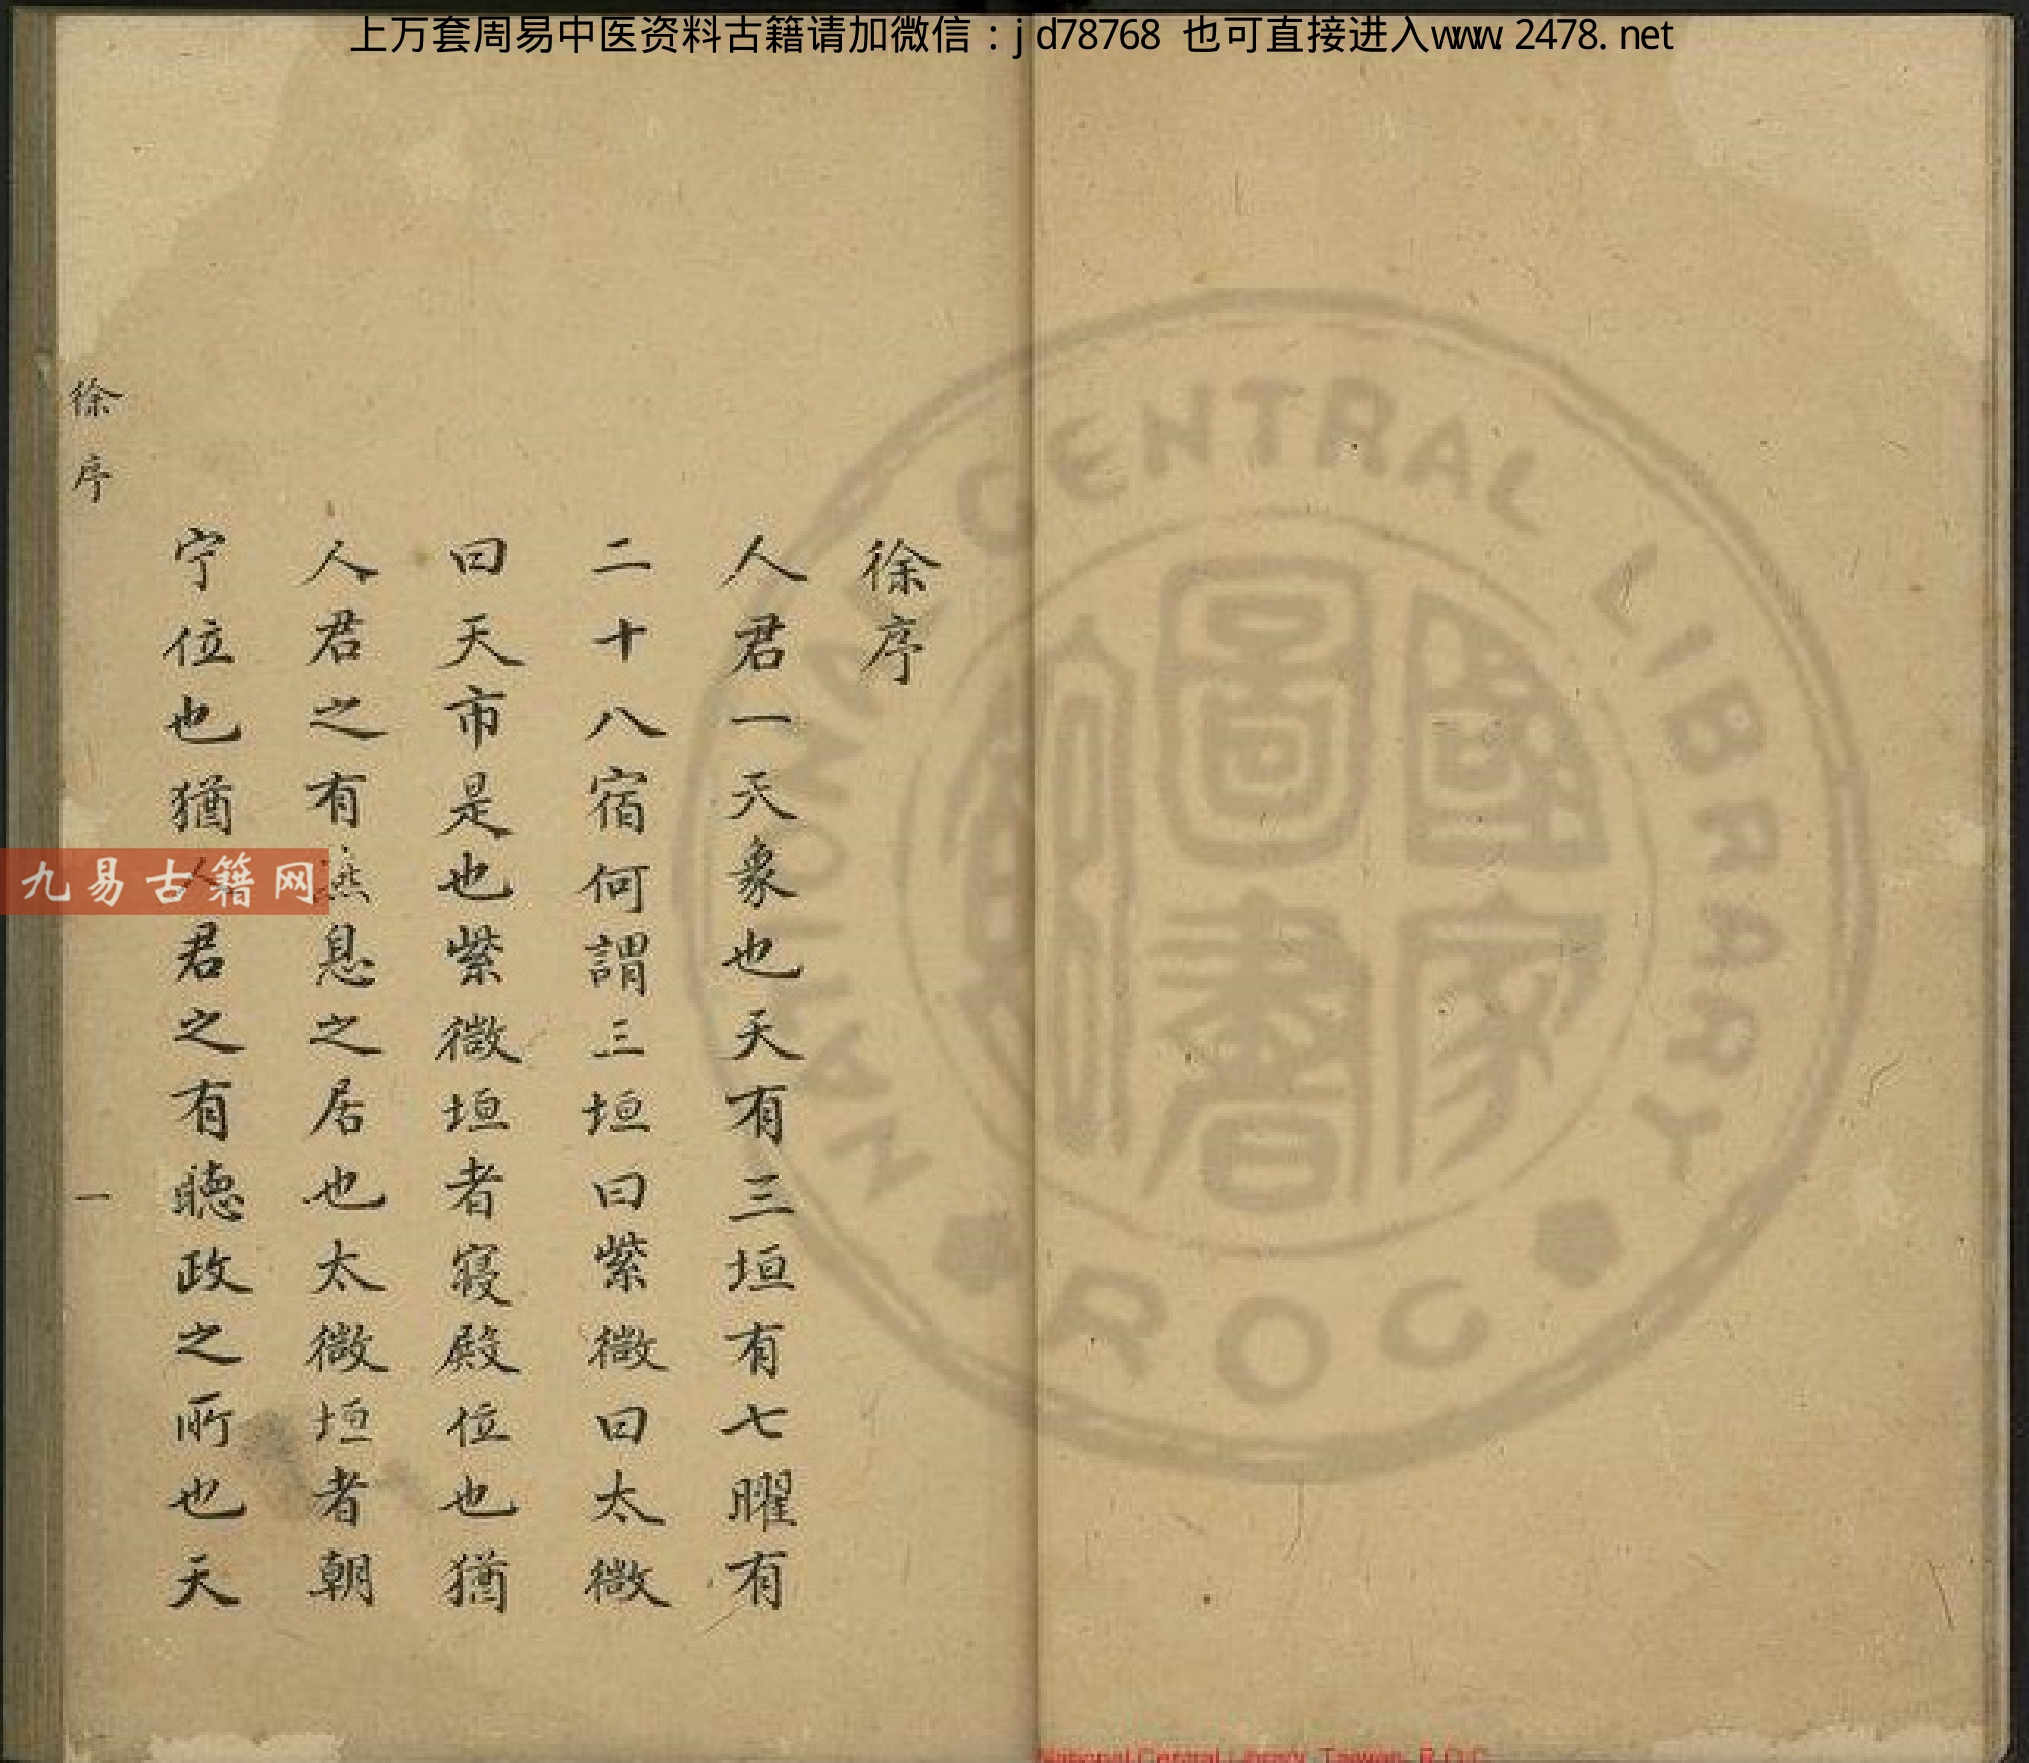 上万套周易中医资料古籍请加微信：jd78768 也可直接进入www.2478.net
徐序
人君一天象也天有三垣有七曜有
二十八宿何謂三垣曰紫微曰太微
曰天市是也紫微垣者寢殿位也猶
人君之有燕息之居也太微垣者朝
宁位也猶人君之有聽政之所也天
徐序
一
九易古籍网
NATIONAL CENTRAL LIBRARY
R O C
國家圖書館
National Central Library, Taiwan, R.O.C